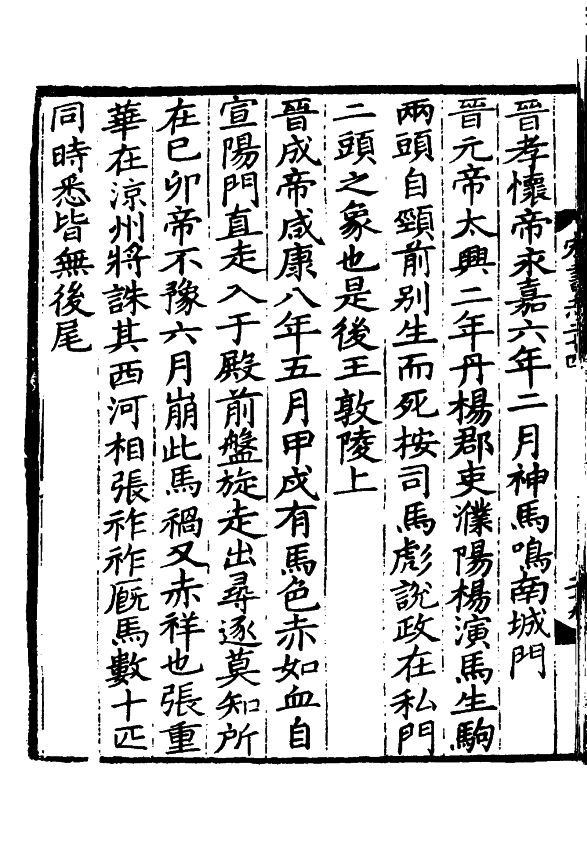 晉孝懷帝永嘉六年二月神馬鳴南城門
晉元帝太興二年丹楊郡吏濮陽楊演馬生駒
兩頭自頸前别生而死按司馬彪說政在私門
二頭之象也是後王敦陵上
晉成帝咸康八年五月甲戌有馬色赤如血自
宣陽門直走入于殿前盤旋走出尋逐莫知所
在巳卯帝不豫六月崩此馬禍又赤祥也張重
華在涼州將誅其西河相張祚祚廐馬數十匹
同時悉皆無後尾